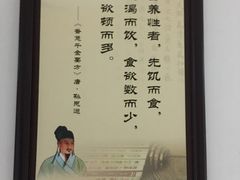 养性者，先饥而食，
渴而饮，食欲数而少，
欲顿而多。
——《备急千金要方》唐·孙思邈